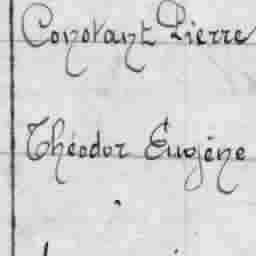 Constant Pierre
Théodor Eugène